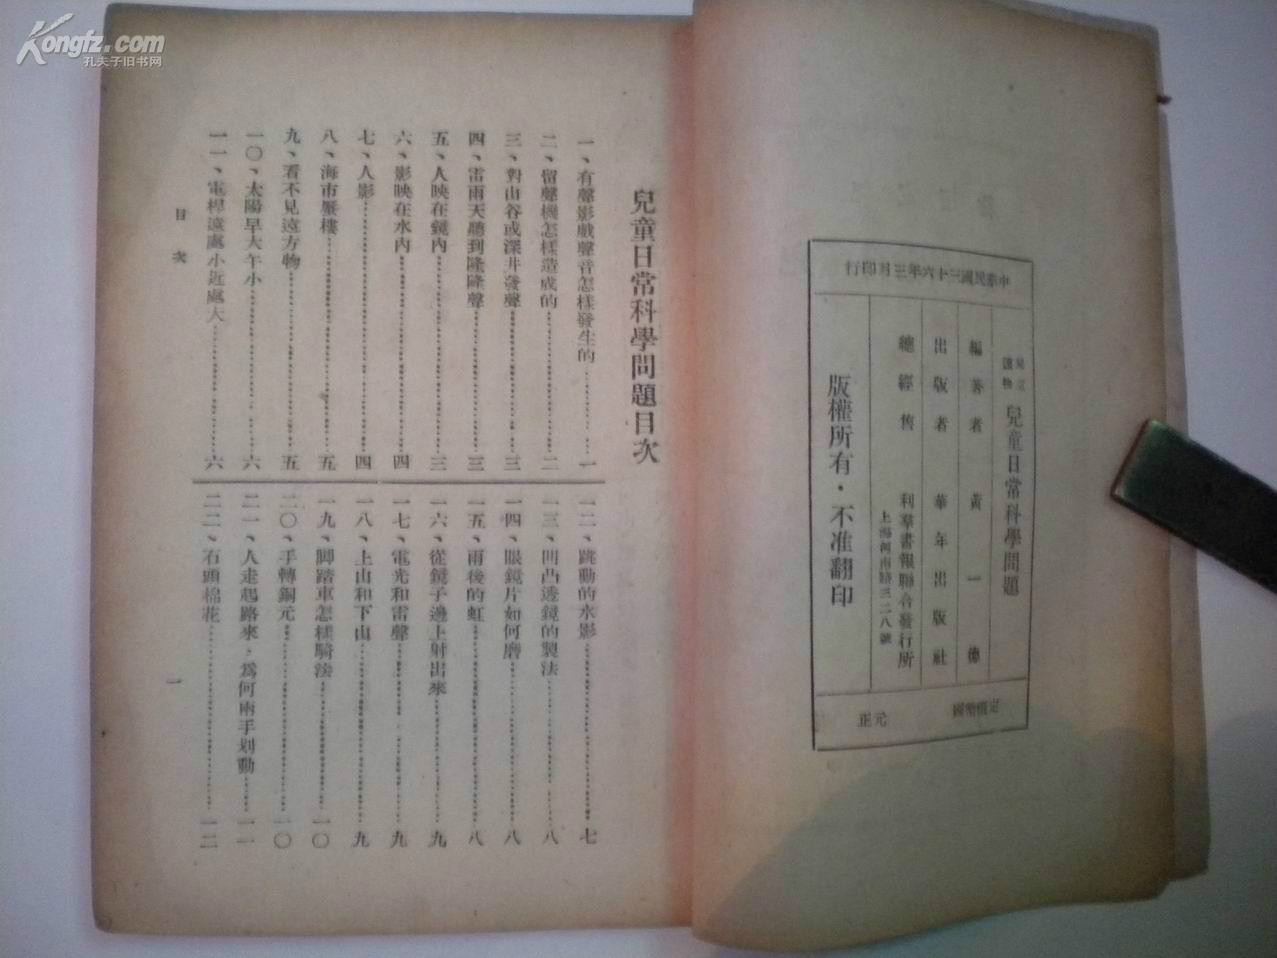 Kongfz.com
孔夫子旧书网
中華民國三十六年三月印行
兒童讀物
兒童日常科學問題
編著者 黃一德
出版者 華年出版社
總經售 利羣書報聯合發行所
上海河南路三二八號
版權所有・不准翻印
定價幣國 元正
兒童日常科學問題目次
一、有聲影戲聲音怎樣發生的……一
二、留聲機怎樣造成的……二
三、對山谷或深井發聲……三
四、雷雨天聽到隆隆聲……三
五、人映在鏡內……三
六、影映在水內……四
七、人影……四
八、海市蜃樓……五
九、看不見遠方物……五
一〇、太陽早大午小……六
一一、電桿遠處小近處大……六
一二、跳動的水影……七
一三、凹凸透鏡的製法……八
一四、眼鏡片如何磨……八
一五、雨後的虹……八
一六、從鏡子邊上射出來……九
一七、電光和雷聲……九
一八、上山和下山……九
一九、脚踏車怎樣騎法……一〇
二〇、手轉銅元……一〇
二一、人走起路來，爲何兩手划動……一一
二二、石頭棉花……一二
目次
一